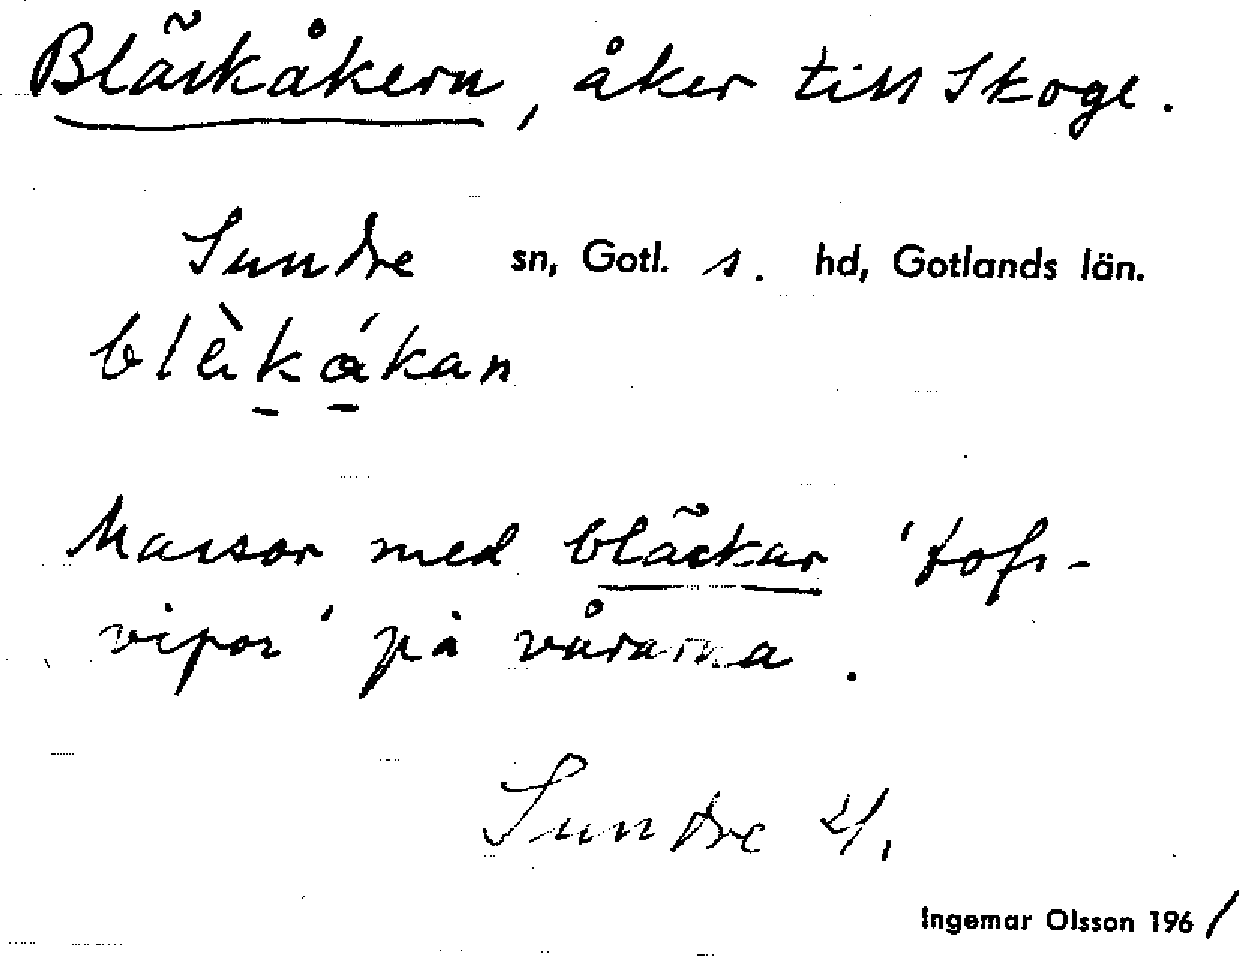 Bläckåkern, åker till Skoge.
Sundre sn, Gotl. s. hd, Gotlands län.
blèkákan
Massor med bläckar 'tofs-
vipor' på vårarna.
Sundre
Ingemar Olsson 1961